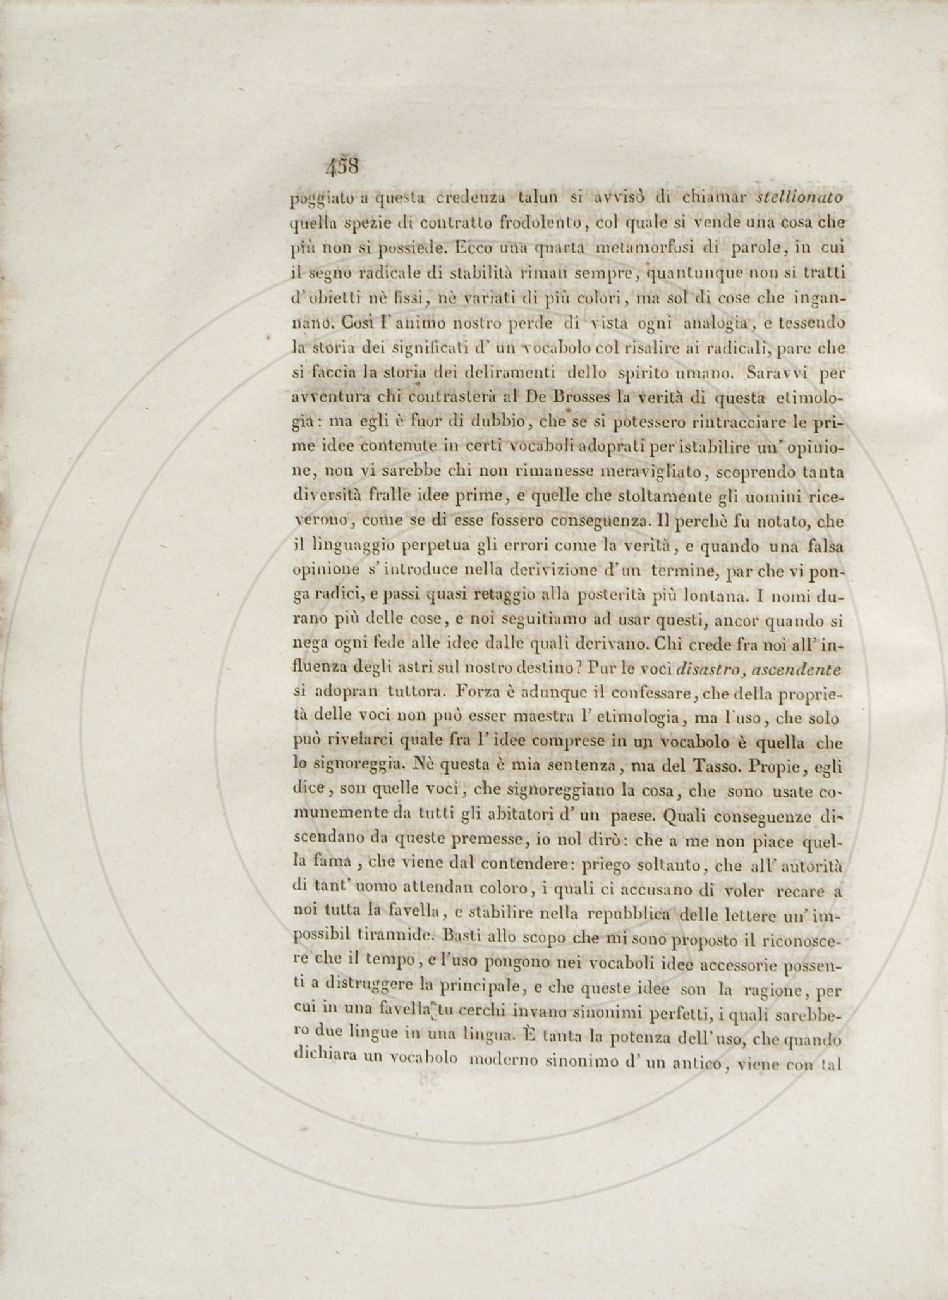 458
poggiato a questa credenza talun si avvisò di chiamar stellionato
quella spezie di contratto frodolento, col quale si vende una cosa che
più non si possiede. Ecco una quarta metamorfosi di parole, in cui
il segno radicale di stabilità riman sempre, quantunque non si tratti
d'obietti nè fissi, nè variati di più colori, ma sol di cose che ingan-
nano. Così l'animo nostro perde di vista ogni analogia, e tessendo
la storia dei significati d' un vocabolo col risalire ai radicali, pare che
si faccia la storia dei deliramenti dello spirito umano. Saravvi per
avventura chi contrasterà al De Brosses la verità di questa etimolo-
gia: ma egli è fuor di dubbio, che se si potessero rintracciare le pri-
me idee contenute in certi vocaboli adoprati per istabilire un' opinio-
ne, non vi sarebbe chi non rimanesse meravigliato, scoprendo tanta
diversità fralle idee prime, e quelle che stoltamente gli uomini rice-
verono, come se di esse fossero conseguenza. Il perchè fu notato, che
il linguaggio perpetua gli errori come la verità, e quando una falsa
opinione s' introduce nella derivizione d'un termine, par che vi pon-
ga radici, e passi quasi retaggio alla posterità più lontana. I nomi du-
rano più delle cose, e noi seguitiamo ad usar questi, ancor quando si
nega ogni fede alle idee dalle quali derivano. Chi crede fra noi all' in-
fluenza degli astri sul nostro destino? Pur le voci disastro, ascendente
si adopran tuttora. Forza è adunque il confessare, che della proprie-
tà delle voci non può esser maestra l' etimologia, ma l'uso, che solo
può rivelarci quale fra l' idee comprese in un vocabolo è quella che
lo signoreggia. Nè questa è mia sentenza, ma del Tasso. Propie, egli
dice, son quelle voci, che signoreggiano la cosa, che sono usate co-
munemente da tutti gli abitatori d' un paese. Quali conseguenze di-
scendano da queste premesse, io nol dirò: che a me non piace quel-
la fama, che viene dal contendere: priego soltanto, che all' autorità
di tant' uomo attendan coloro, i quali ci accusano di voler recare a
noi tutta la favella, e stabilire nella repubblica delle lettere un' im-
possibil tirannide. Basti allo scopo che mi sono proposto il riconosce-
re che il tempo, e l'uso pongono nei vocaboli idee accessorie possen-
ti a distruggere la principale, e che queste idee son la ragione, per
cui in una favella tu cerchi invano sinonimi perfetti, i quali sarebbe-
ro due lingue in una lingua. È tanta la potenza dell' uso, che quando
dichiara un vocabolo moderno sinonimo d' un antico, viene con tal